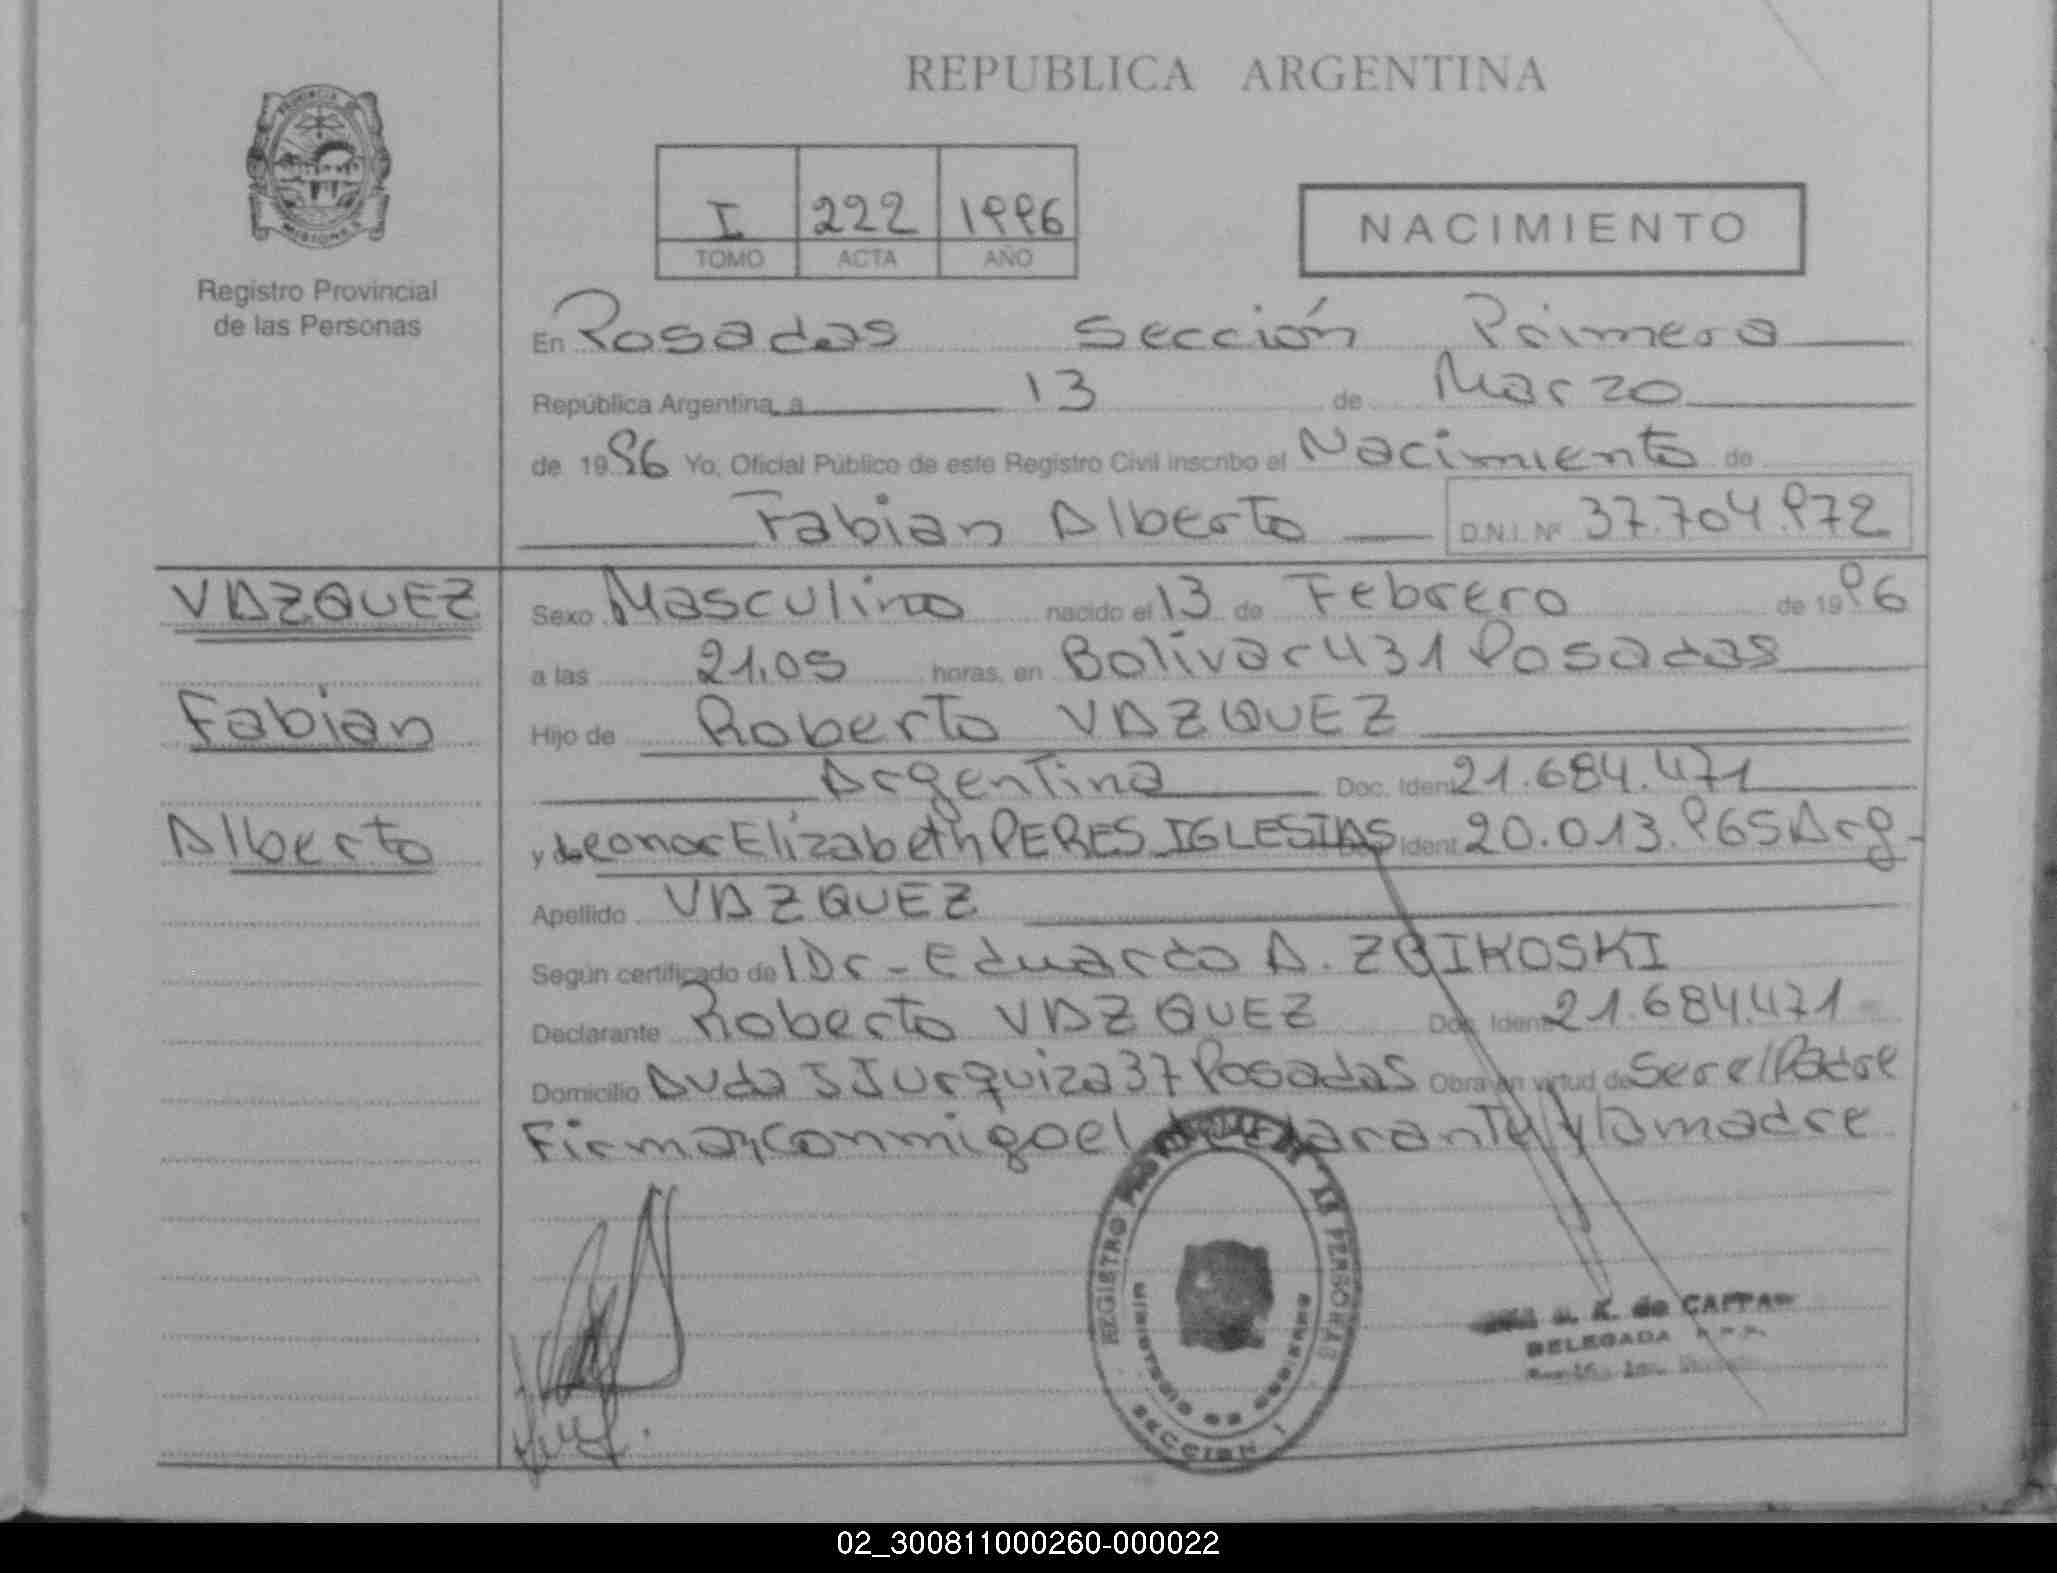 REPUBLICA ARGENTINA
PROVINCIA DE MISIONES
Registro Provincial
de las Personas
I 222 1996
TOMO ACTA AÑO
NACIMIENTO
En Posadas Sección Primera
República Argentina, a 13 de Marzo
de 1996 Yo, Oficial Público de este Registro Civil inscribo el Nacimiento de
Fabian Alberto D.N.I. Nº 37.704.972
VAZQUEZ
Fabian
Alberto
Sexo Masculino nacido el 13 de Febrero de 1996
a las 21,05 horas, en Bolivar 431 Posadas
Hijo de Roberto VAZQUEZ
Argentina Doc. Ident 21.684.471
y de Leonor Elizabeth PERES IGLESIAS Ident 20.013.965 Arg-
Apellido VAZQUEZ
Según certificado de Dr- Eduardo A. ZOIKOSKI
Declarante Roberto VAZQUEZ Doc. Ident 21.684.471
Domicilio Avda JJ Urquiza 37 Posadas Obra en virtud de Ser el Padre
Firman conmigo el declarante y la madre
REGISTRO PROVINCIAL DE LAS PERSONAS
MINISTERIO DE GOBIERNO
SECCION 1
K. de
DELEGADA
02_300811000260-000022